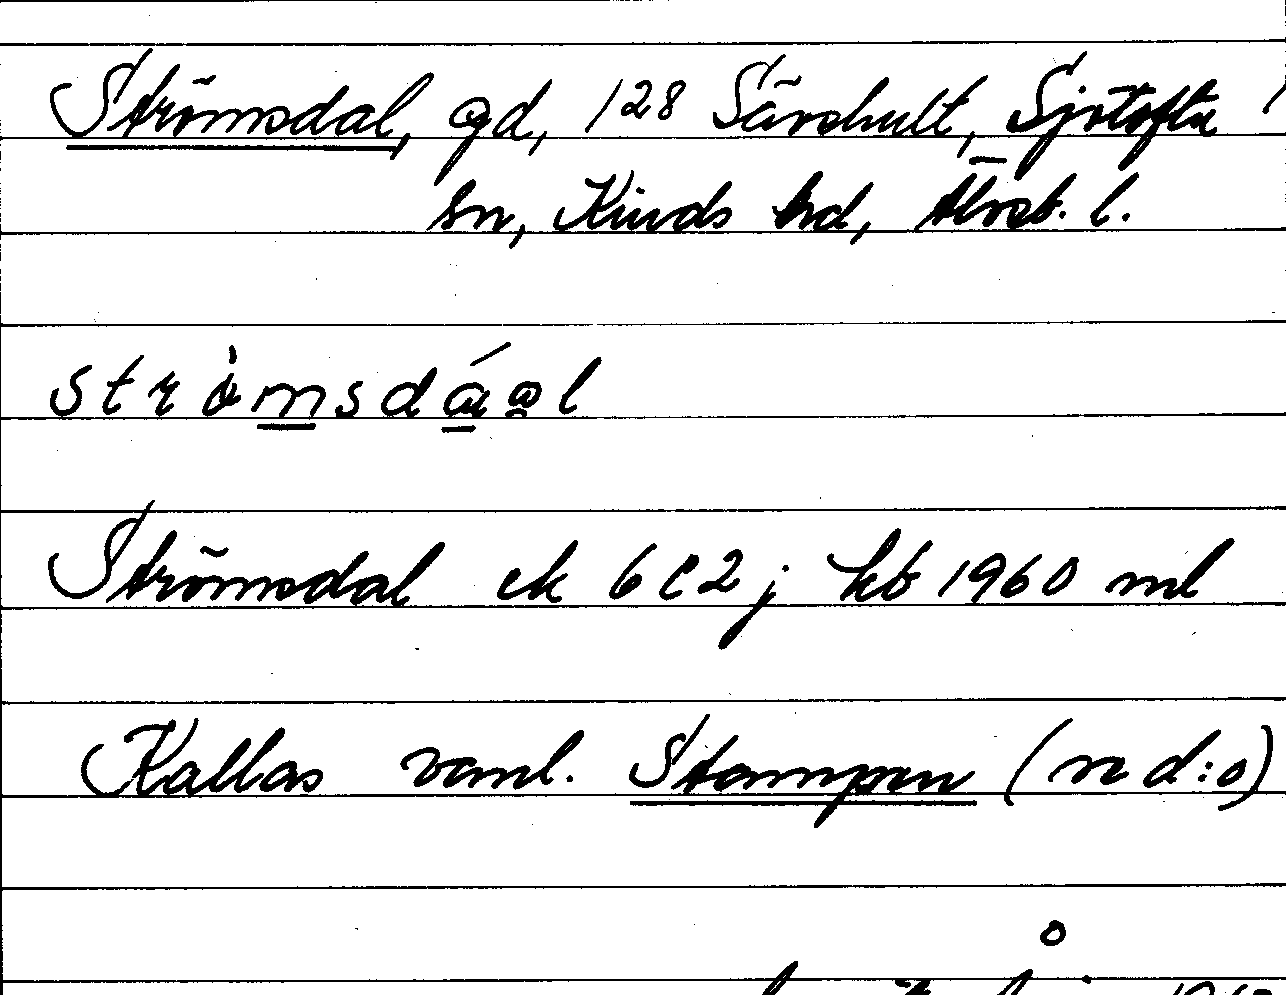 Strömsdal, gd, 128 Särshult, Sjötofta
sn, Kinds hd, Älvsb. l.
strömsdáal
Strömsdal ek 6 C 2 j kb 1960 ml
Kallas vanl. Stampen (se d:o)